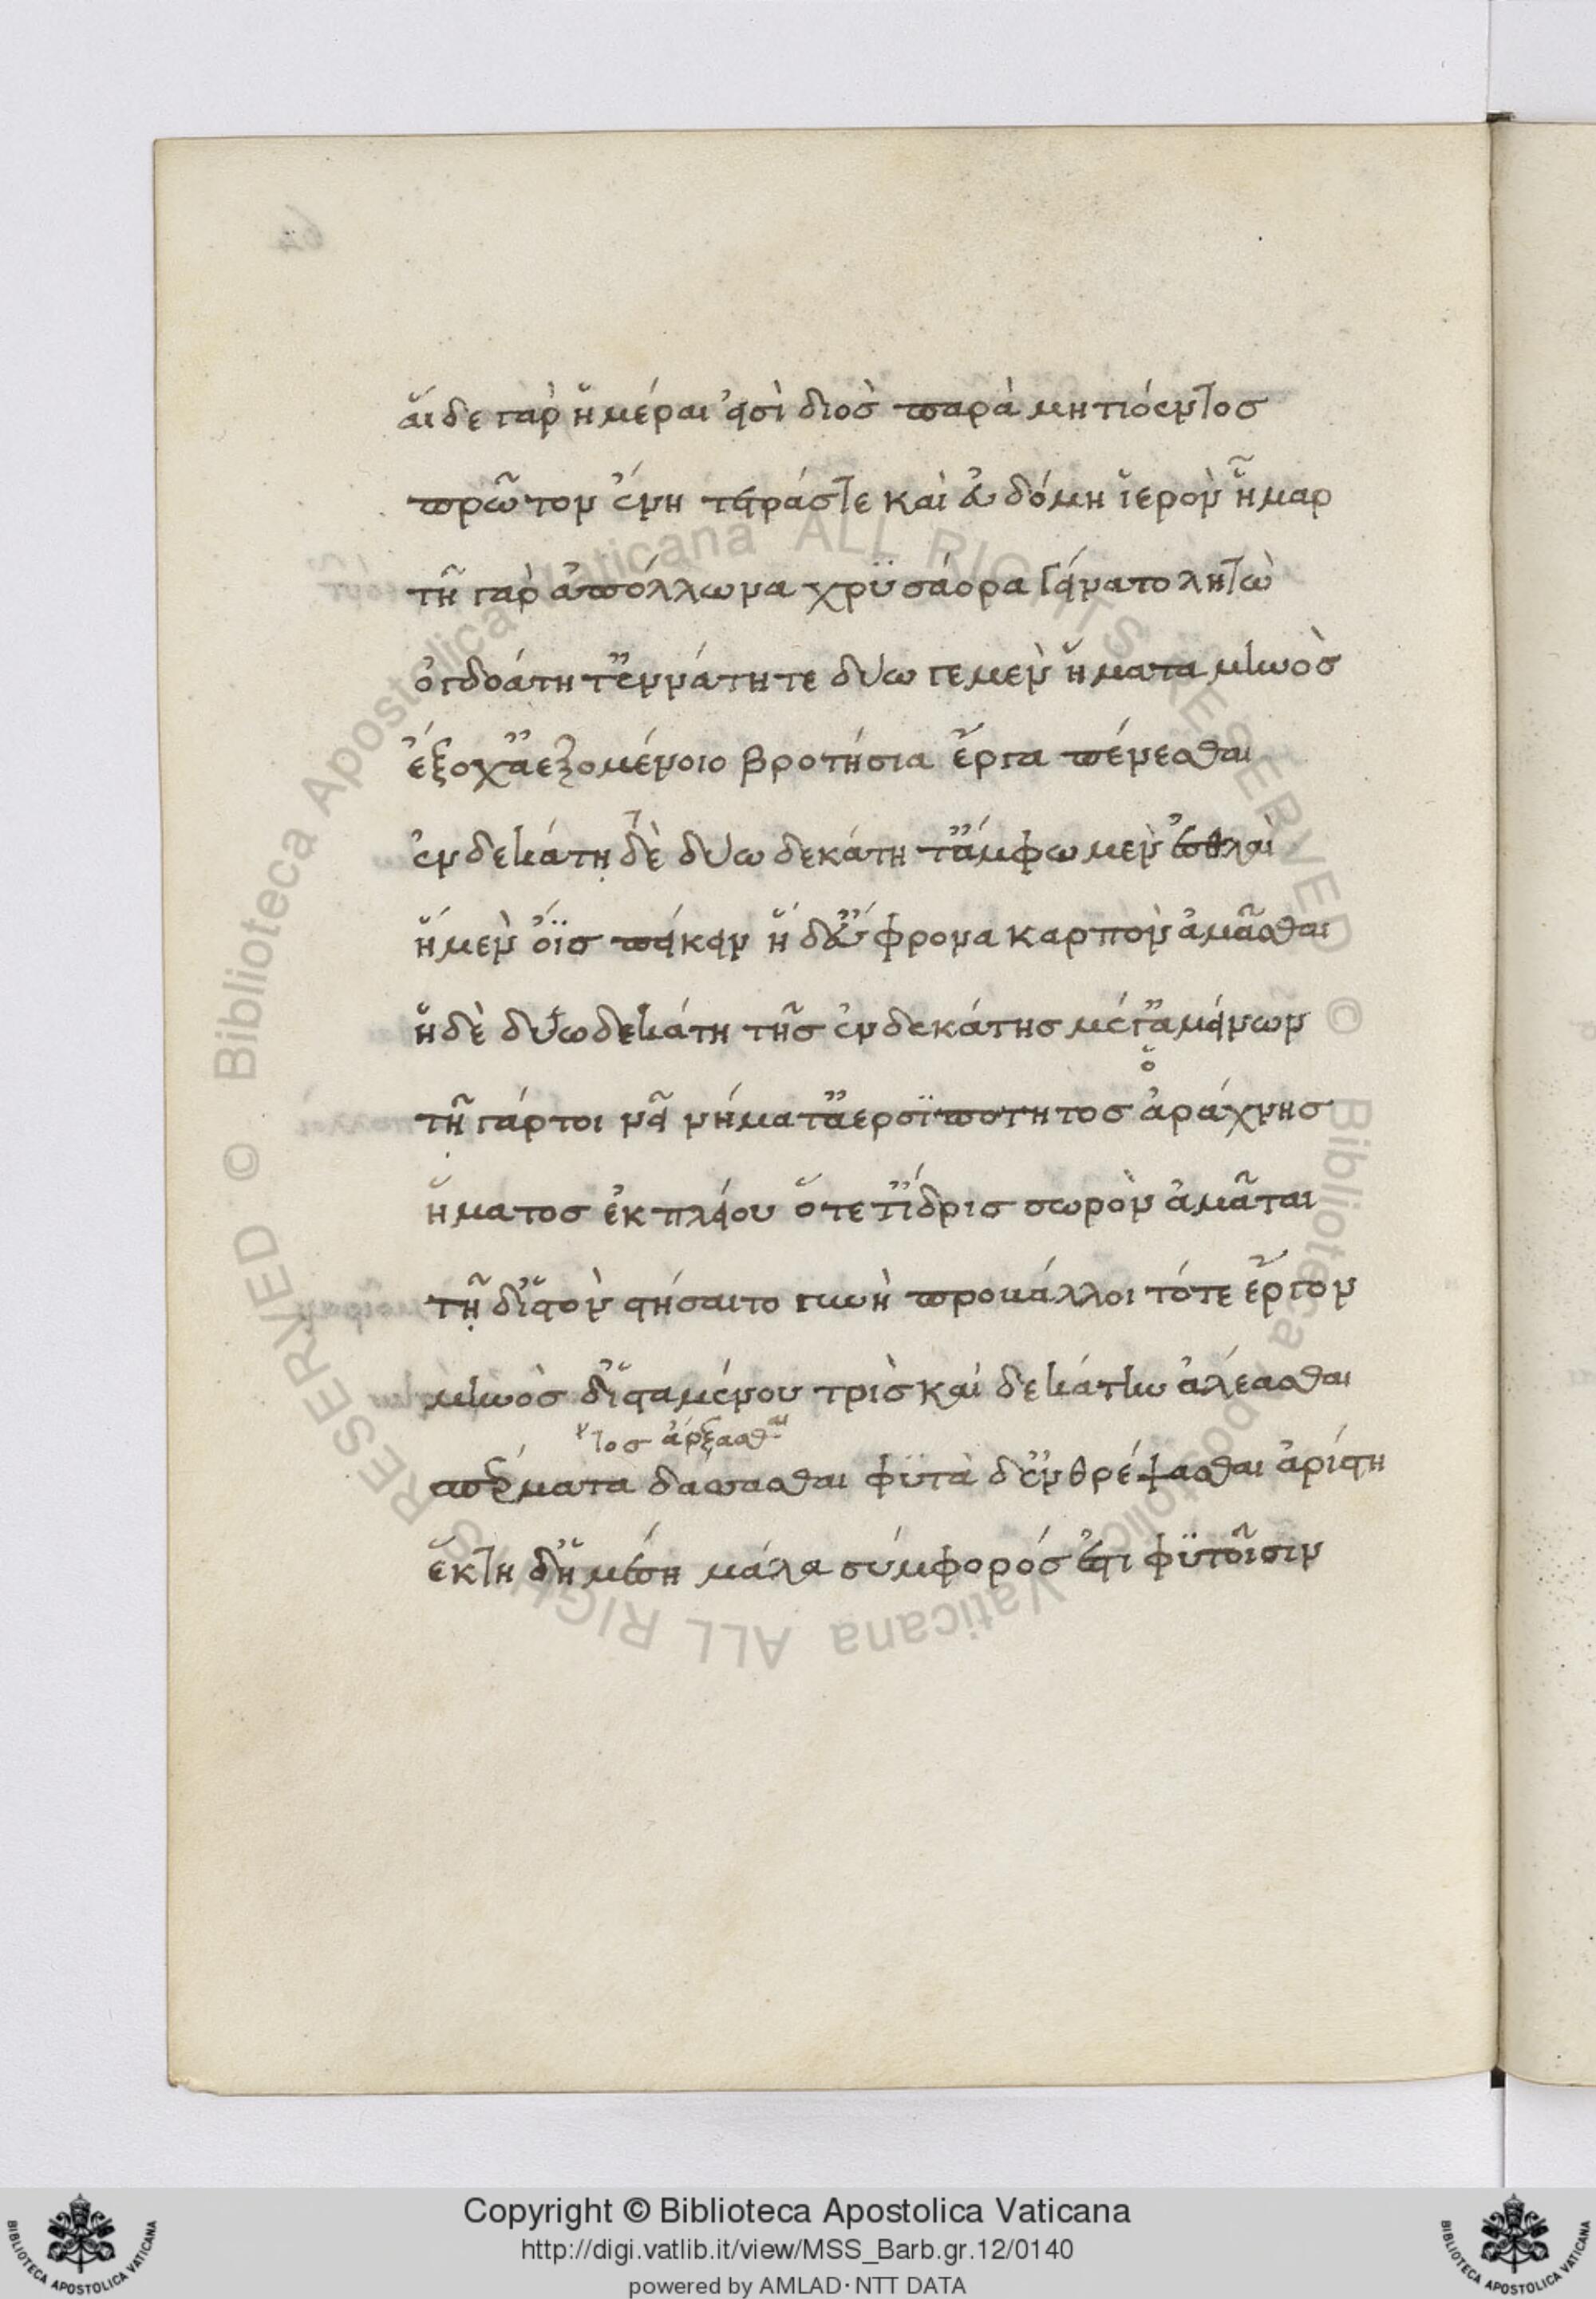 αἵδε γὰρ ἡμέραι εἰσὶ διὸς παρὰ μητιόεντος
πρῶτον ἕνη τετράς τε καὶ ἑβδόμη ἱερὸν ἦμαρ
τῆ γὰρ ἀπόλλωνα χρϋσάορα γείνατο λητὼ
ὀγδοάτη τ' ἐννάτη τε δύω γε μὲν ἤματα μηνὸς
ἔξοχ' ἀεξομένοιο βροτήσια ἔργα πένεσθαι
ἐνδεκάτη δὲ δυωδεκάτη τ' ἄμφω μὲν ἐσθλαὶ
ἤμὲν ὄϊς πείκειν ἠδ' εὔφρονα καρπὸν ἀμᾶσθαι
ἡ δὲ δυωδεκάτη τῆς ἐνδεκάτης μέγ' ἀμείνων
τῆ γάρ τοι νεῖ νήματ' ἀερσϊπότητος ἀράχνης
ὁ
ἤματος ἐκ πλείου ὅτε τ' ἴδρις σωρὸν ἀμᾶται
τῆ δ' ἱστὸν στήσαιτο γυνὴ προβάλλοι τότε ἔργον
μηνὸς δ' ἱσταμένου τρὶς καὶ δεκάτην ἀλέασθαι
τος ἄρξασθαι
σπέρματα δάσασθαι φϋτὰ δ' ἐνθρέψασθαι ἀρίστη
ἕκτη δ' ἡ μέση μάλα σύμφορός ἐστι φϋτοῖσιν
Copyright © Biblioteca Apostolica Vaticana
http://digi.vatlib.it/view/MSS_Barb.gr.12/0140
powered by AMLAD·NTT DATA